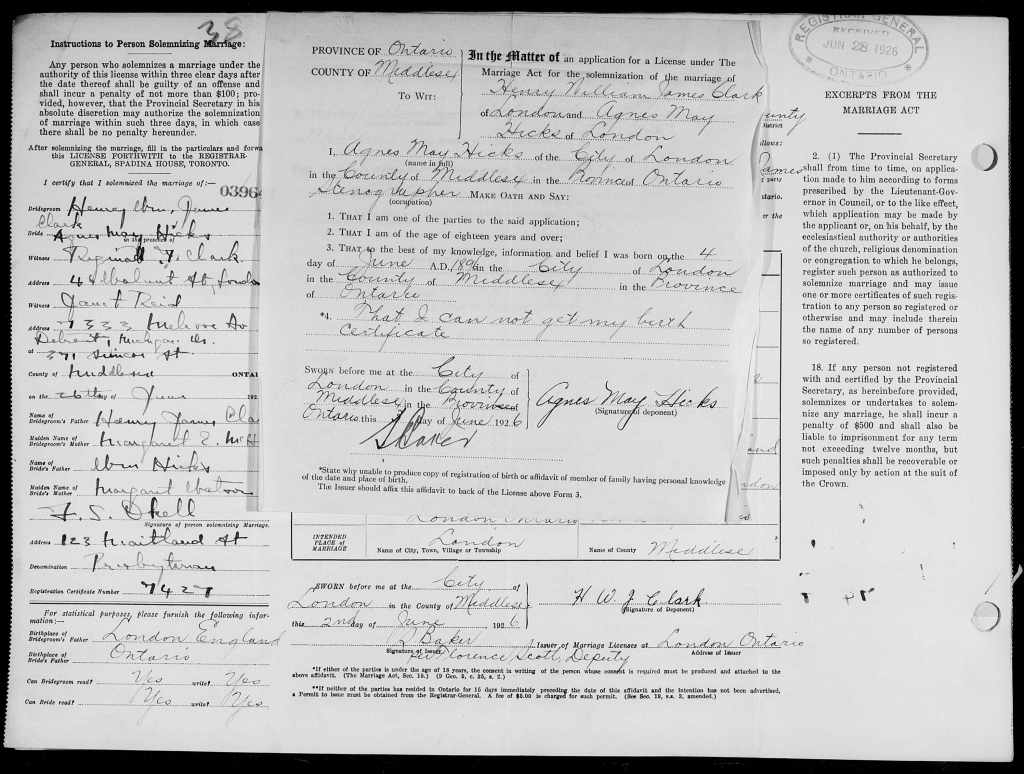 38
Instructions to Person Solemnizing Marriage:
Any person who solemnizes a marriage under the
authority of this license within three clear days after
the date thereof shall be guilty of an offense and
shall incur a penalty of not more than $100; pro-
vided, however, that the Provincial Secretary in his
absolute discretion may authorize the solemnization
of marriage within such three days, in which case
there shall be no penalty hereunder.
After solemnizing the marriage, fill in the particulars and forwa
this LICENSE FORTHWITH to the REGISTRAR-
GENERAL, SPADINA HOUSE, TORONTO.
I certify that I solemnized the marriage of:—
03964
Bridegroom Henry Wm. James
Clark
Bride Agnes May Hicks
in the presence of
Witness Reginald H. Clark
Address 4 Walnut St, London
Witness Janet Reid
Address 7333 Melrose Av
Detroit, Michigan, Us.
at 371 Simcoe St
County of Middlesex ONTAR
on the 26th day of June 192
Name of Bridegroom's Father Henry James Clar
Maiden Name of Bridegroom's Mother Margaret E.
Name of Bride's Father Wm Hicks
Maiden Name of Bride's Mother Margaret Watson
F. S. Okell
Signature of person solemnizing Marriage.
Address 123 Maitland St
Denomination Presbyterian
Registration Certificate Number 7427
For statistical purposes, please furnish the following infor-
mation:—
Birthplace of Bridegroom's Father London England
Birthplace of Bride's Father Ontario
Can Bridegroom read? Yes write? Yes
Can Bride read? Yes write? Yes
PROVINCE OF Ontario
COUNTY OF Middlesex
TO WIT:
In the Matter of an application for a License under The
Marriage Act for the solemnization of the marriage of
Henry William James Clark
of London and Agnes May
Hicks of London
I, Agnes May Hicks of the City of London
(name in full)
in the County of Middlesex in the Province of Ontario
Stenographer MAKE OATH AND SAY:
(occupation)
1. THAT I am one of the parties to the said application;
2. THAT I am of the age of eighteen years and over;
3. THAT to the best of my knowledge, information and belief I was born on the 4
day of June A.D. 1896 in the City of London
in the County of Middlesex in the Province
of Ontario
*4. That I can not get my birth
certificate
SWORN before me at the City of
London in the County of
Middlesex in the Province
Ontario this day of June 1926
Agnes May Hicks
(Signature of deponent)
Baker
*State why unable to produce copy of registration of birth or affidavit of member of family having personal knowledge
of the date and place of birth.
The Issuer should affix this affidavit to back of the License above Form 3.
London Ontario
INTENDED
PLACE of
MARRIAGE
London
Name of City, Town, Village or Township
Name of County Middlese
SWORN before me at the City of
London in the County of Middlesex
this 2nd day of June 1926
H W J Clark
(Signature of Deponent)
Baker
Signature of Issuer
Per Florence Scott, Deputy
Issuer of Marriage Licenses at London Ontario
Address of Issuer
*If either of the parties is under the age of 18 years, the consent in writing of the person whose consent is required must be produced and attached to the
above affidavit. (The Marriage Act, Sec. 15.) (9 Geo. 5, c. 35, s. 2.)
**If neither of the parties has resided in Ontario for 15 days immediately preceding the date of this affidavit and the Intention has not been advertised,
a Permit to issue must be obtained from the Registrar-General. A fee of $5.00 is charged for such permit. (See Sec. 19, s.s. 2, amended.)
unty
District
llows:
James
party
ntario.
er the
and
ndon
REGISTRAR GENERAL
RECEIVED
JUN 28 1926
ONTARIO
EXCERPTS FROM THE
MARRIAGE ACT
2. (1) The Provincial Secretary
shall from time to time, on applica-
tion made to him according to forms
prescribed by the Lieutenant-Gov-
ernor in Council, or to the like effect,
which application may be made by
the applicant or, on his behalf, by the
ecclesiastical authority or authorities
of the church, religious denomination
or congregation to which he belongs,
register such person as authorized to
solemnize marriage and may issue
one or more certificates of such regis-
tration to any person so registered or
otherwise and may include therein
the name of any number of persons
so registered.
18. If any person not registered
with and certified by the Provincial
Secretary, as hereinbefore provided,
solemnizes or undertakes to solem-
nize any marriage, he shall incur a
penalty of $500 and shall also be
liable to imprisonment for any term
not exceeding twelve months, but
such penalties shall be recoverable or
imposed only by action at the suit of
the Crown.